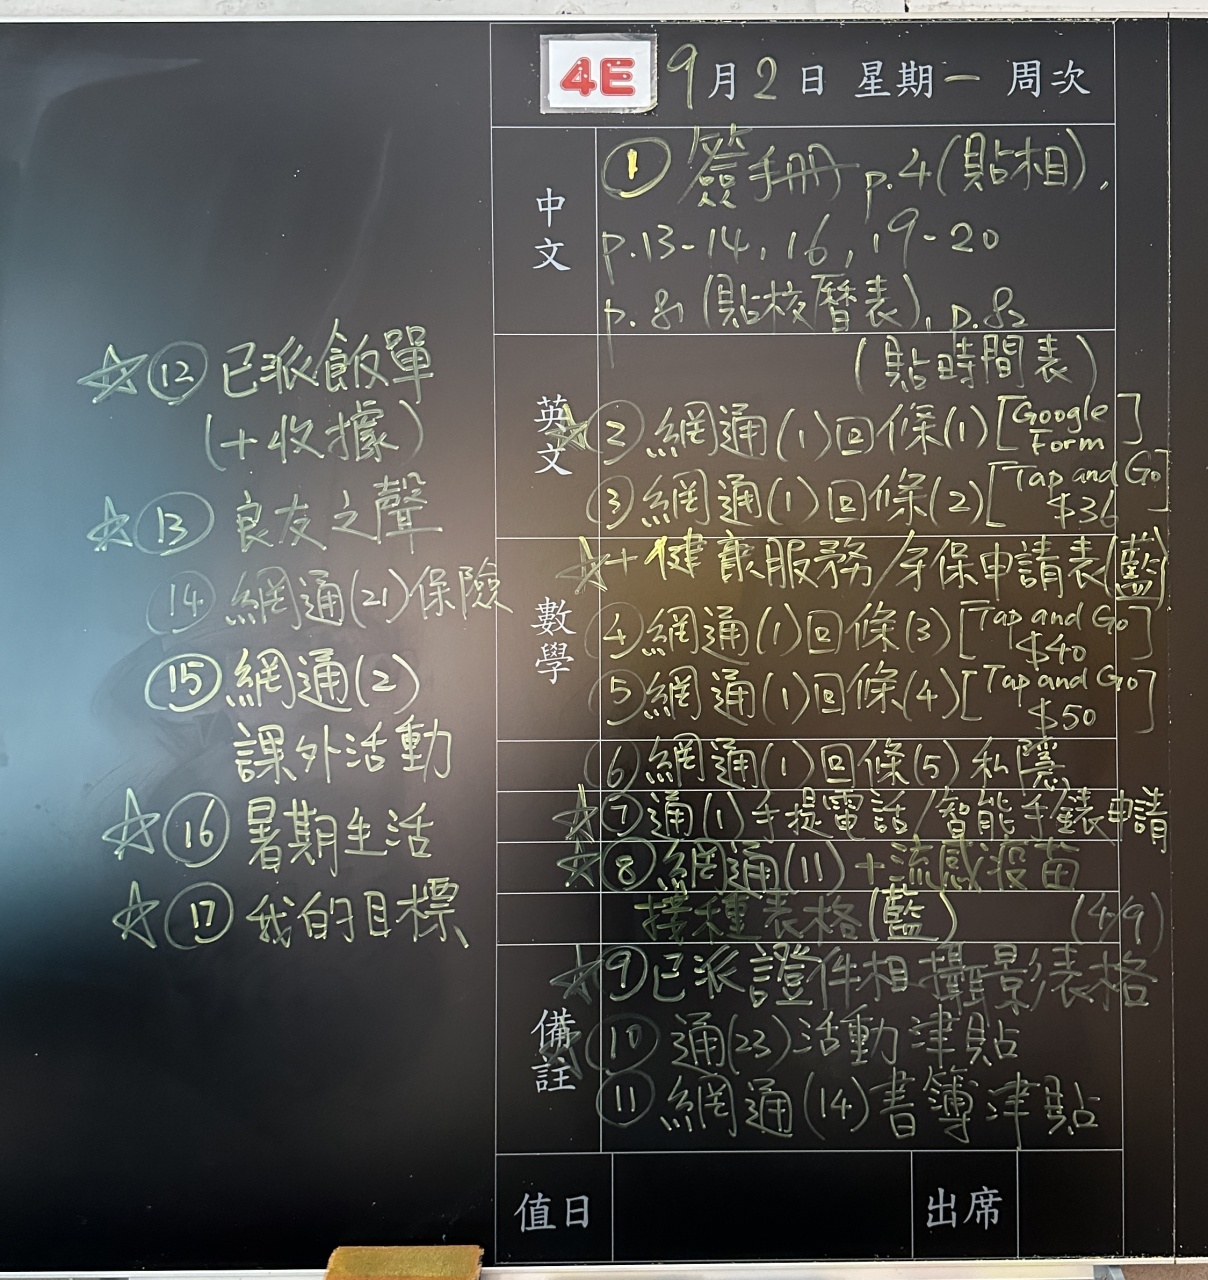 4E 9月2日 星期一 周次
中文
① 簽手冊 p.4(貼相),
p.13-14, 16, 19-20
p.81 (貼校曆表), p.82
(貼時間表)
英文
☆② 網通(1)回條(1)[Google Form]
③ 網通(1)回條(2)[Tap and Go $36]
數學
☆+健康服務/牙保申請表(藍)
④ 網通(1)回條(3)[Tap and Go $40]
⑤ 網通(1)回條(4)[Tap and Go $50]
⑥ 網通(1)回條(5)私隱
☆⑦ 通(1)手提電話/智能手錶申請
☆⑧ 網通(11)+流感疫苗
接種表格(藍) (4/9)
備註
☆⑨ 已派證件相攝影表格
☆⑩ 通(23)活動津貼
⑪ 網通(14)書簿津貼
值日 出席
☆⑫ 已派飯單
(+收據)
☆⑬ 良友之聲
⑭ 網通(21)保險
⑮ 網通(2)
課外活動
☆⑯ 暑期生活
☆⑰ 我的目標